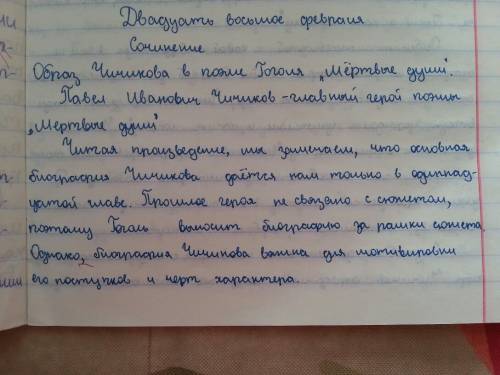 Двадцать восьмое февраля
Сочинение
Образ Чичикова в поэме Гоголя „Мёртвые души".
Павел Иванович Чичиков - главный герой поэмы
„Мертвые души"
Читая произведение, мы замечаем, что основная
биография Чичикова даётся нам только в одиннад-
цатой главе. Прошлое героя не связано с сюжетом,
поэтому Гоголь выносит биографию за рамки сюжета.
Однако, биография Чичикова важна для мотивировки
его поступков и черт характера.